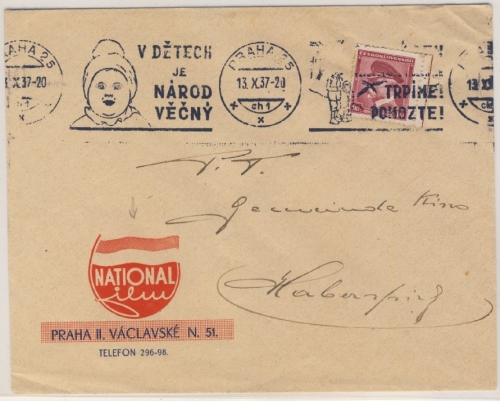 PRAHA 25
X.37-20
V DĚTECH
JE
NÁROD
VĚČNÝ
PRAHA 25
13.X.37-20
ch 1
ČESKOSLOVENSKO
TRPÍME!
POMOZTE!
P. T.
Gemeinde Kino
Haberspirk
NATIONAL
film
PRAHA II. VÁCLAVSKÉ N. 51.
TELEFON 296-98.